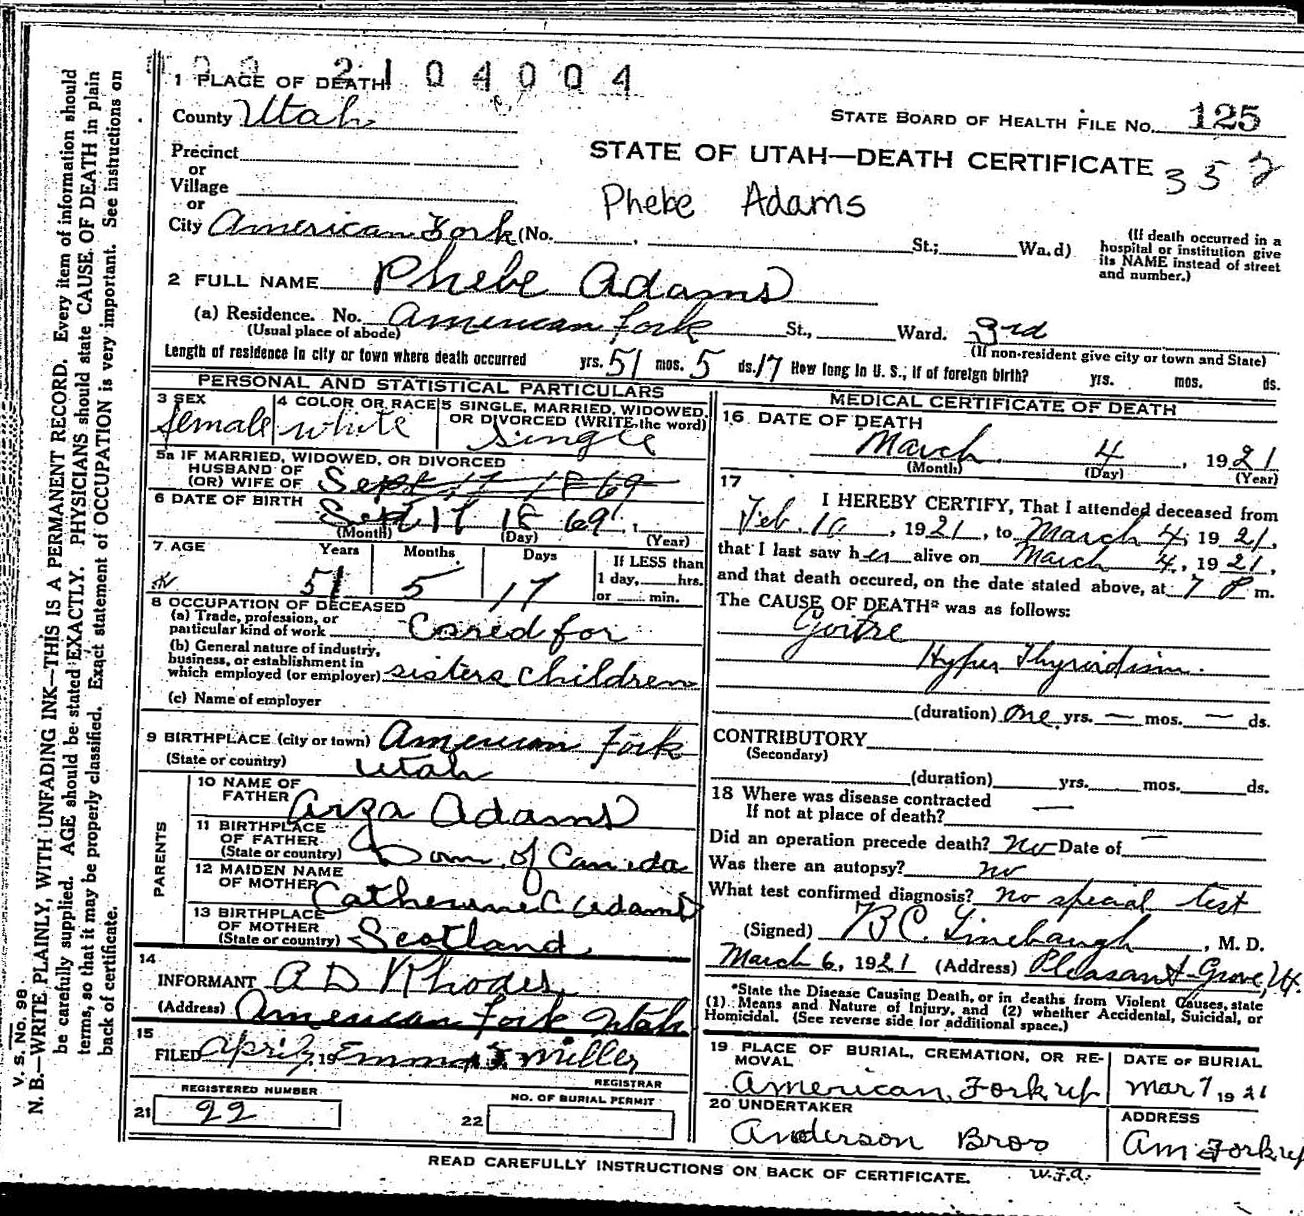 1 PLACE OF DEATH 2104004
County Utah
STATE BOARD OF HEALTH FILE No. 125
Precinct
or
Village
or
STATE OF UTAH—DEATH CERTIFICATE 352
Phebe Adams
City American Fork (No. St.; Wa.d)
(If death occurred in a hospital or institution give its NAME instead of street and number.)
2 FULL NAME Phebe Adams
(a) Residence. No. American Fork St., Ward. 3rd
(Usual place of abode)
(If non-resident give city or town and State)
Length of residence in city or town where death occurred yrs. 51 mos. 5 ds. 17 How long in U. S., if of foreign birth? yrs. mos. ds.
PERSONAL AND STATISTICAL PARTICULARS
3 SEX female
4 COLOR OR RACE white
5 SINGLE, MARRIED, WIDOWED, OR DIVORCED (WRITE the word) Single
5a IF MARRIED, WIDOWED, OR DIVORCED
HUSBAND OF
(OR) WIFE OF Sept 17 1869
6 DATE OF BIRTH Sept 17 1869
(Month) (Day) (Year)
7 AGE Years Months Days If LESS than
51 5 17 1 day, hrs.
or min.
8 OCCUPATION OF DECEASED
(a) Trade, profession, or
particular kind of work Cared for
(b) General nature of industry,
business, or establishment in
which employed (or employer) sisters children
(c) Name of employer
9 BIRTHPLACE (city or town) American Fork
(State or country) Utah
PARENTS
10 NAME OF FATHER Arza Adams
11 BIRTHPLACE OF FATHER
(State or country) Dom of Canada
12 MAIDEN NAME OF MOTHER Catherine C Adams
13 BIRTHPLACE OF MOTHER
(State or country) Scotland
14 INFORMANT A D Rhodes
(Address) American Fork Utah
15 FILED April, 19 Emma J Miller
REGISTRAR
REGISTERED NUMBER
21 22
NO. OF BURIAL PERMIT
22
MEDICAL CERTIFICATE OF DEATH
16 DATE OF DEATH
March 4, 1921
(Month) (Day) (Year)
17
I HEREBY CERTIFY, That I attended deceased from
Feb. 10, 1921, to March 4, 1921,
that I last saw her alive on March 4, 1921,
and that death occured, on the date stated above, at 7 P m.
The CAUSE OF DEATH* was as follows:
Goitre
Hyper Thyroidism.
(duration) One yrs. — mos. — ds.
CONTRIBUTORY
(Secondary)
(duration) yrs. mos. ds.
18 Where was disease contracted
If not at place of death? —
Did an operation precede death? No Date of —
Was there an autopsy? no
What test confirmed diagnosis? no special test
(Signed) B C Linebaugh, M. D.
March 6, 1921 (Address) Pleasant Grove, Ut.
*State the Disease Causing Death, or in deaths from Violent Causes, state
(1) Means and Nature of Injury, and (2) whether Accidental, Suicidal, or
Homicidal. (See reverse side for additional space.)
19 PLACE OF BURIAL, CREMATION, OR RE-
MOVAL
American Fork
DATE OF BURIAL
Mar 7, 1921
20 UNDERTAKER
Anderson Bros
ADDRESS
Am Fork
READ CAREFULLY INSTRUCTIONS ON BACK OF CERTIFICATE.
V. S. No. 98
N. B.—WRITE PLAINLY, WITH UNFADING INK—THIS IS A PERMANENT RECORD. Every item of information should
be carefully supplied. AGE should be stated EXACTLY. PHYSICIANS should state CAUSE OF DEATH in plain
terms, so that it may be properly classified. Exact statement of OCCUPATION is very important. See instructions on
back of certificate.